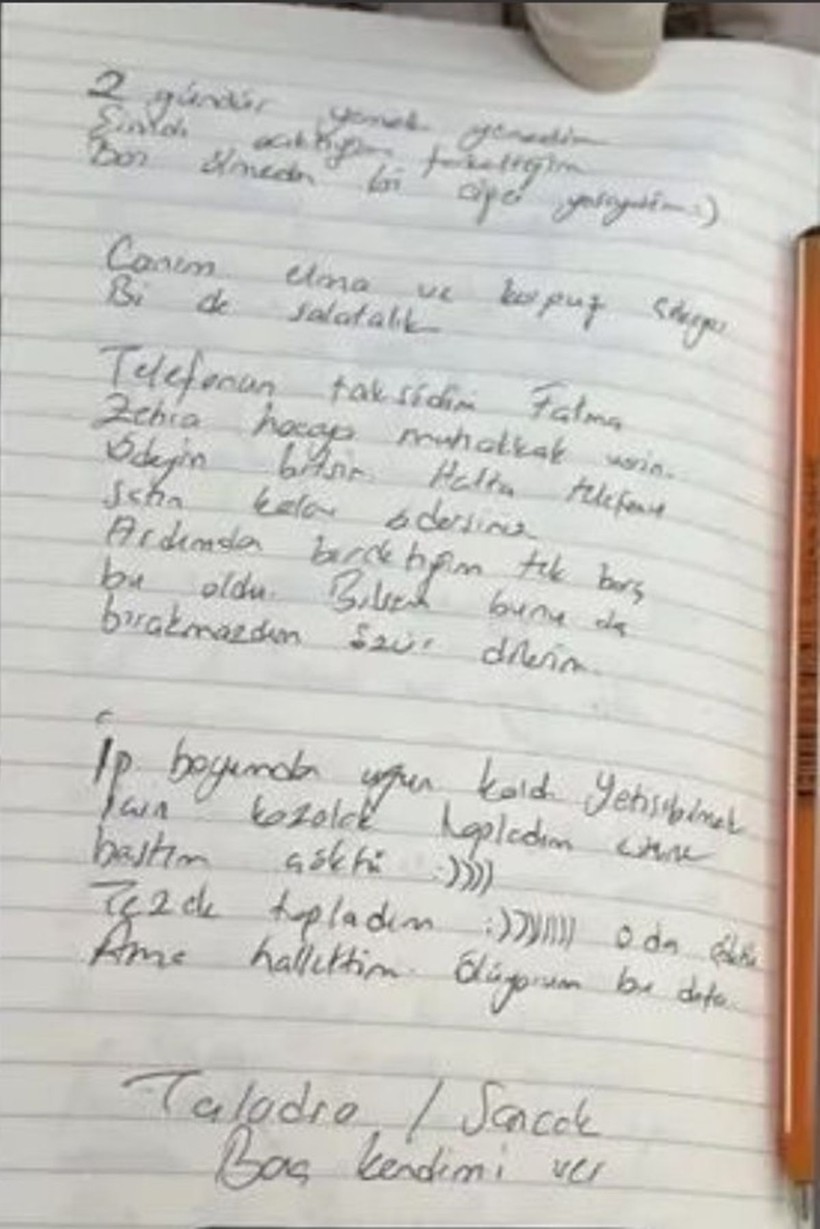 2 gündür yemek yemedim
Şimdi acıktığım
Ben ölmeden bi ciğer yeseydim :)
Canım elma ve karpuz çekiyor
Bi de salatalık
Telefonun taksidini Fatma
Zehra hocaya muhakkak verin.
Ödeyin bitsin. Hatta telefonu
satın kalanı ödersiniz
Ardımda bıraktığım tek borç
bu oldu. Bilsem bunu da
bırakmazdım özür dilerim.
İp boyumdan uzun kaldı Yetişebilmek
için kozalak topladım üzerine
bastım çöktü :))))
Tezek topladım :)))))))) o da çöktü
Ama hallettim. Ölüyorum bu defa.
Taladro / Sancak
Baş kendimi ver